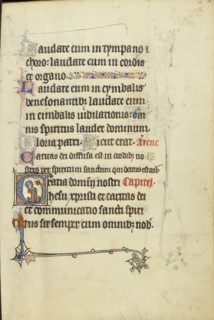 Laudate eum in tympano &
choro: laudate eum in cordis
et organo
Laudate eum in cymbalis
benesonantibus laudate eum
in cimbalis iubilationis: om
nis spiritus laudet dominum.
Gloria patri. Sicut erat.
Caritas dei diffusa est in cordibus no
stris per spiritum sanctum qui datus est nob
Gratia domini nostri Capitl.
ihesu xpristi et caritas dei
et communicatio sancti spiri
tus sit semper cum omnibus nob.